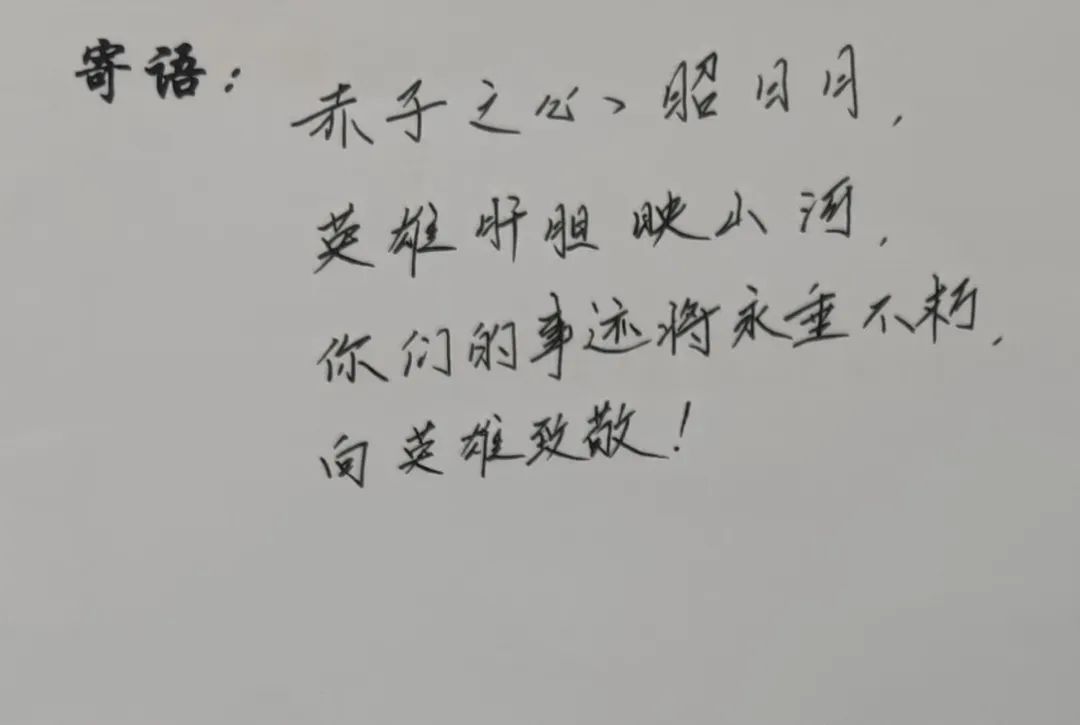 寄语：赤子之心昭日月，
英雄肝胆映山河，
你们的事迹将永垂不朽，
向英雄致敬！